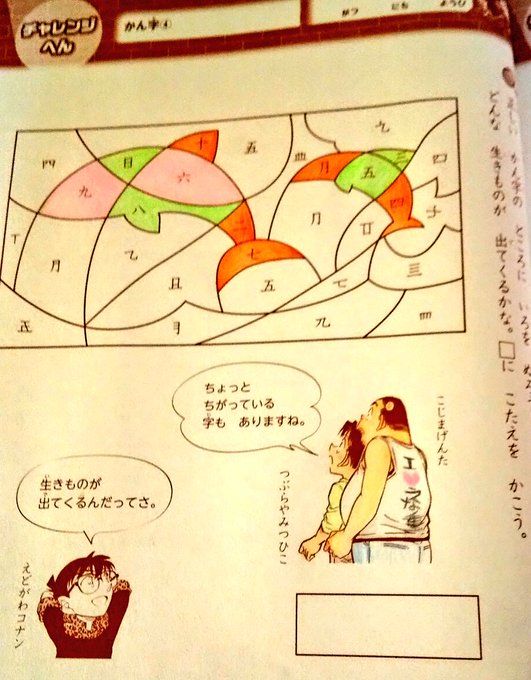 チャレンジ
へん
かん字④
がつ にち ようび
かん字の ところに いろを
どんな 生きものが 出てくるかな。□に こたえを かこう。
九
十
五
日
六
九
八
月
五
三
四
月
二
七
五
七
三
九
ちょっと
ちがっている
字も ありますね。
こじまげんた
つぶらやみつひこ
I
生きものが
出てくるんだってさ。
えどがわコナン